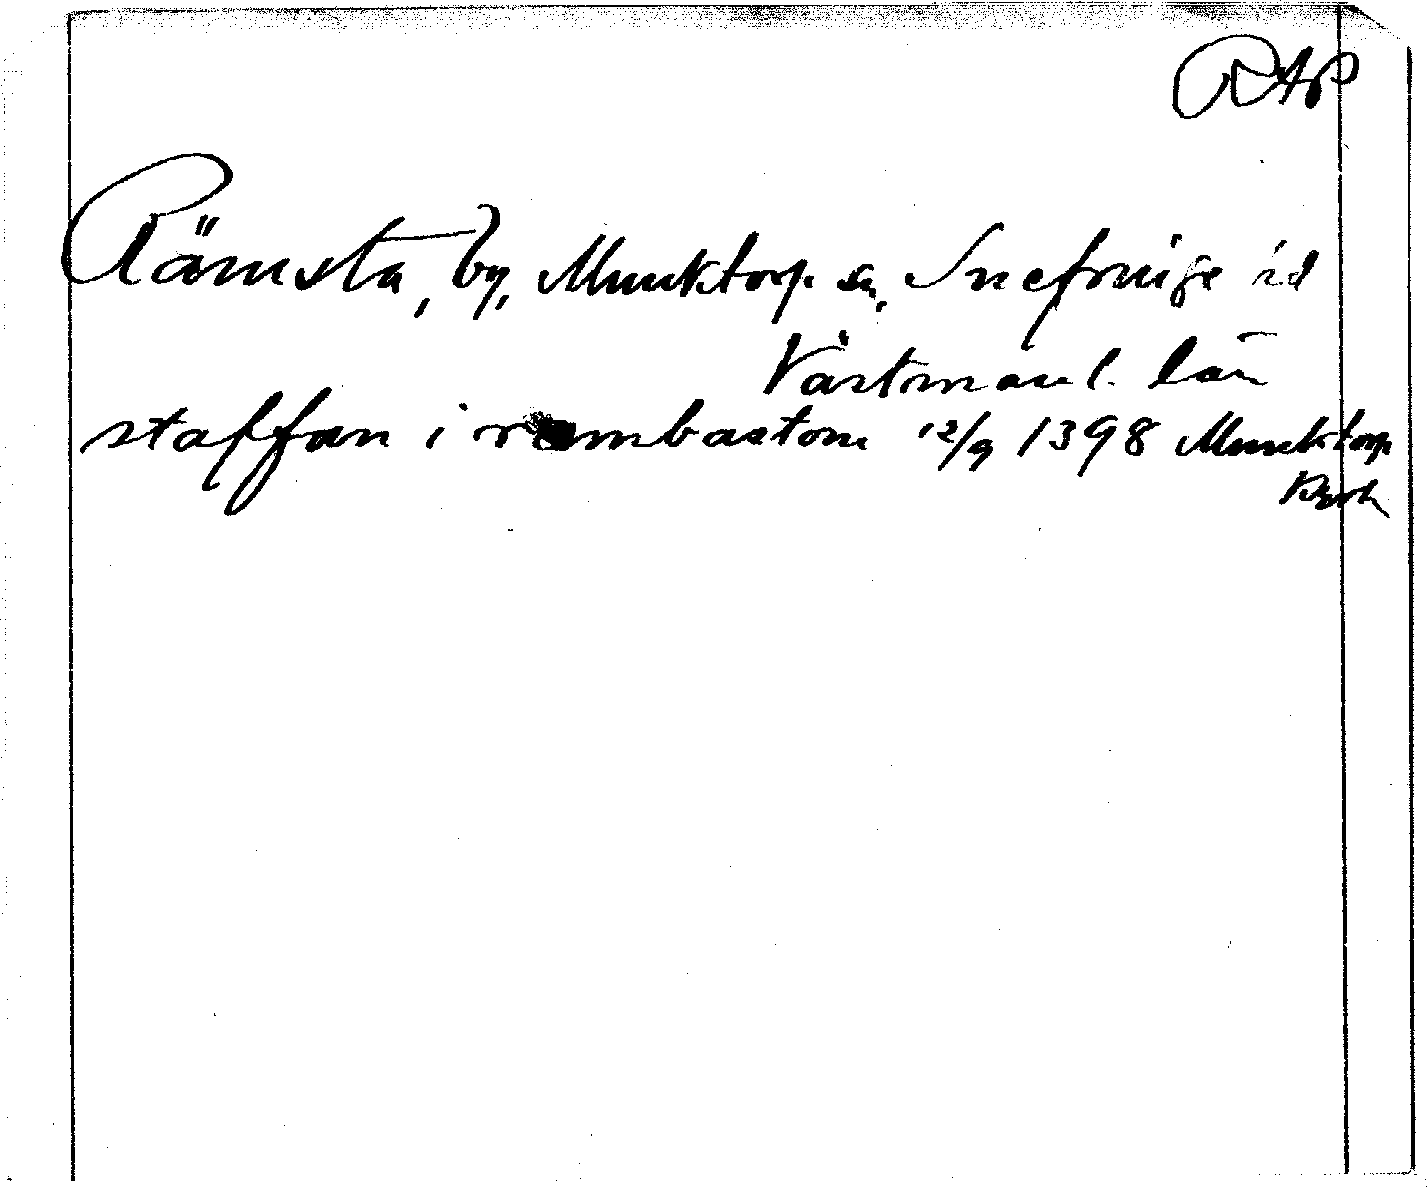 RAP
Rämsta, by, Munktorp sn, Snefringe hd
Västmanl. län
staffan i rembastom 12/9 1398 Munktorp